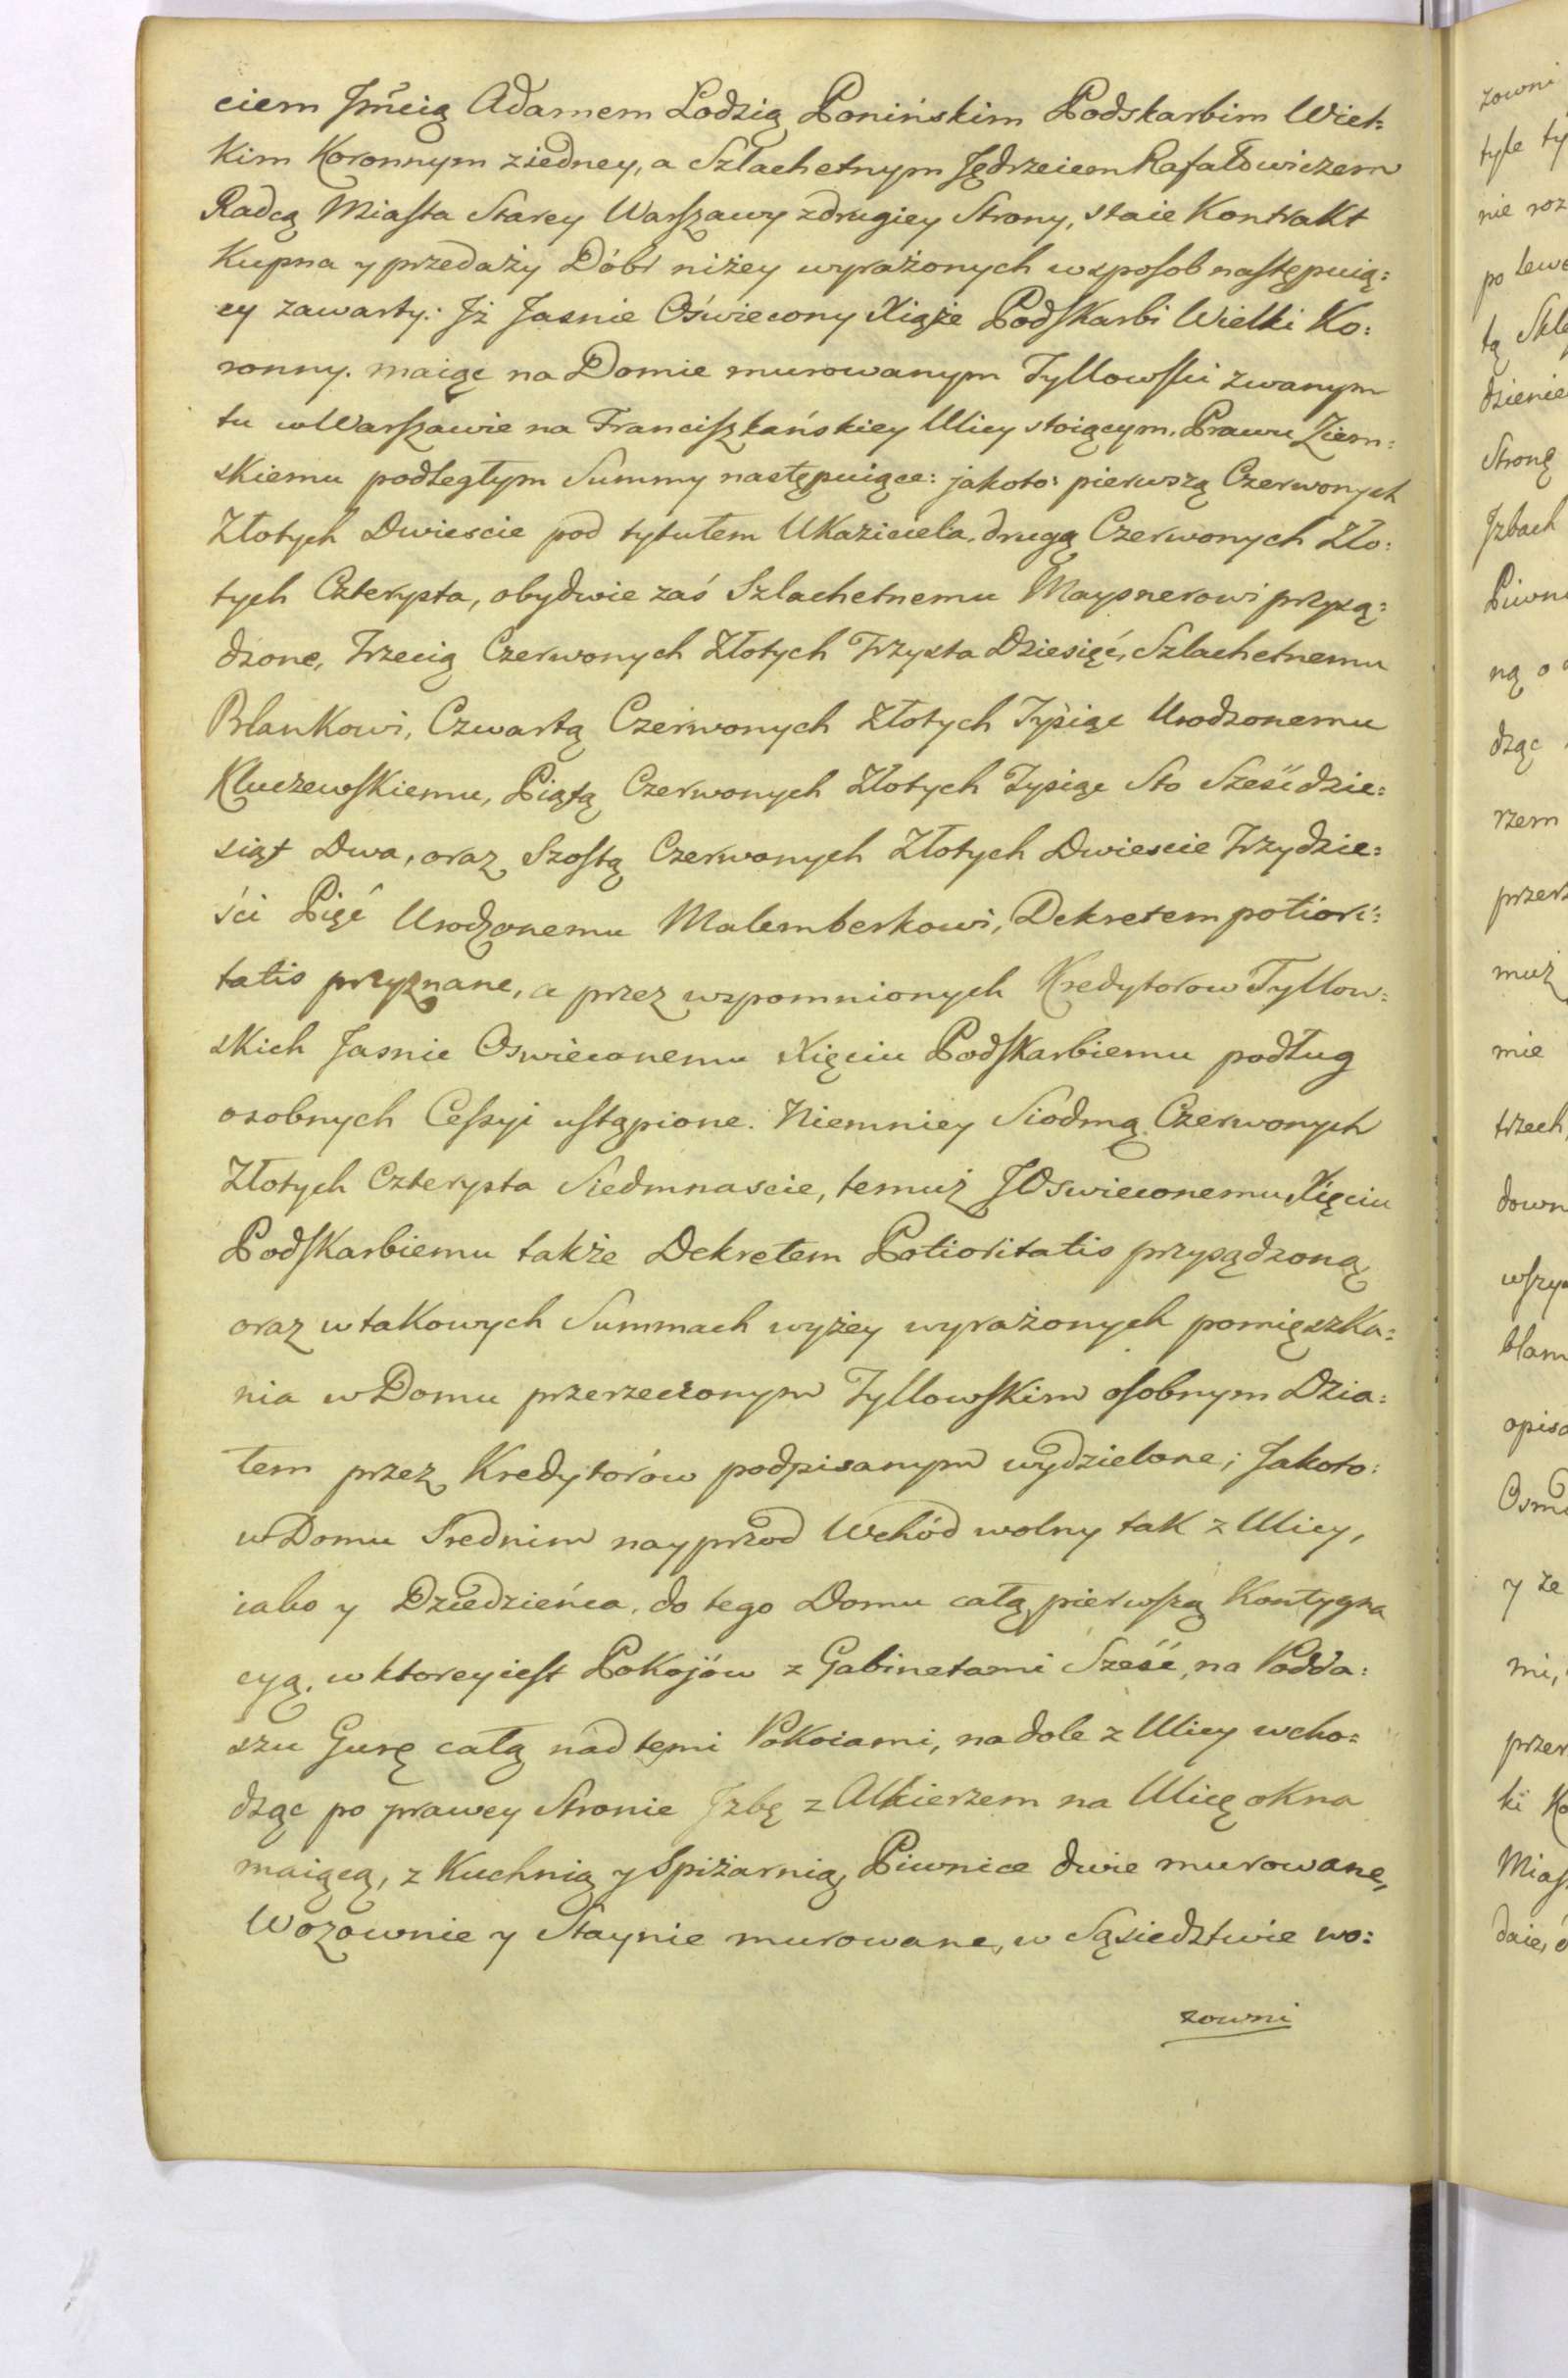 ciem Jmcią Adamem Lodzią Ponińskim Podskarbim Wiel:
kim Koronnym z iedney, a Szlachetnym Jędrzeiem Rafałowiczem
Radcą Miasta Starey Warszawy z drugiey Strony, staie Kontrakt
Kupna y przedaży Dóbr niżey wyrażonych w sposob następuią:
cy zawarty: Jż Jasnie Oświecony Xiąże Podskarbi Wielki Ko:
ronny. maiąc na Domie murowanym Tyllowski zwanym
tu w Warszawie na Franciszkańskiey Ulicy stoiącym, Prawu Ziem:
skiemu podległym Summy następuiące: jakoto: pierwszą Czerwonych
Złotych Dwiescie pod tytułem Ukaziciela, drugą Czerwonych Zło:
tych Czterysta, obydwie zaś Szlachetnemu Maysnerowi przysą:
dzone, Trzecią Czerwonych Złotych Trzysta Dziesięć, Szlachetnemu
Blankowi, Czwartą Czerwonych Złotych Tysiąc Urodzonemu
Kluczewskiemu, Piątą Czerwonych Złotych Tysiąc Sto Sześćdzie:
siąt Dwa, oraz Szostą Czerwonych Złotych Dwiescie Trzydzie:
ści Pięć Urodzonemu Malemberkowi, Dekretem potiori:
tatis przyznane, a przez wspomnionych Kredytorow Tyllow:
skich Jasnie Oswieconemu Xięciu Podskarbiemu podług
osobnych Cessyi ustąpione. Niemniey Siódmą Czerwonych
Złotych Czterysta Siedmnascie, temuż JOswieconemu Xięciu
Podskarbiemu także Dekretem Potioritatis przysądzoną
oraz w takowych Summach wyżey wyrażonych pomięszka:
nia w Domu przerzeczonym Tyllowskim osobnym Dzia:
łem przez Kredytorów podpisanym wydzielone; Jakoto:
w Domu Srednim nayprzod Wchód wolny tak z Ulicy,
iako y Dziedzieńca, do tego Domu całą pierwszą Kontygna
cyą, w ktorey iest Pokojów z Gabinetami Sześć, na Podda:
szu Gurę całą nad temi Pokoiami, na dole z Ulicy wcho:
dząc po prawey Stronie Jzbę z Alkierzem na Ulicę okna
maiącą, z Kuchnią y Spiżarnią, Piwnice dwie murowane,
Wozownie y Staynie murowane, w Sąsiedztwie wo:
zowni
zowni
tyle ty
nie roz
po lewe
tą Skle
dzienie
Stronę
Jzbach
Piwni
ną o
dząc
rzem
przer
muż
mie
trzech
down
wszy
blam
opisa
Osm
y ze
mi,
przer
ki Ko
Mias
daie,